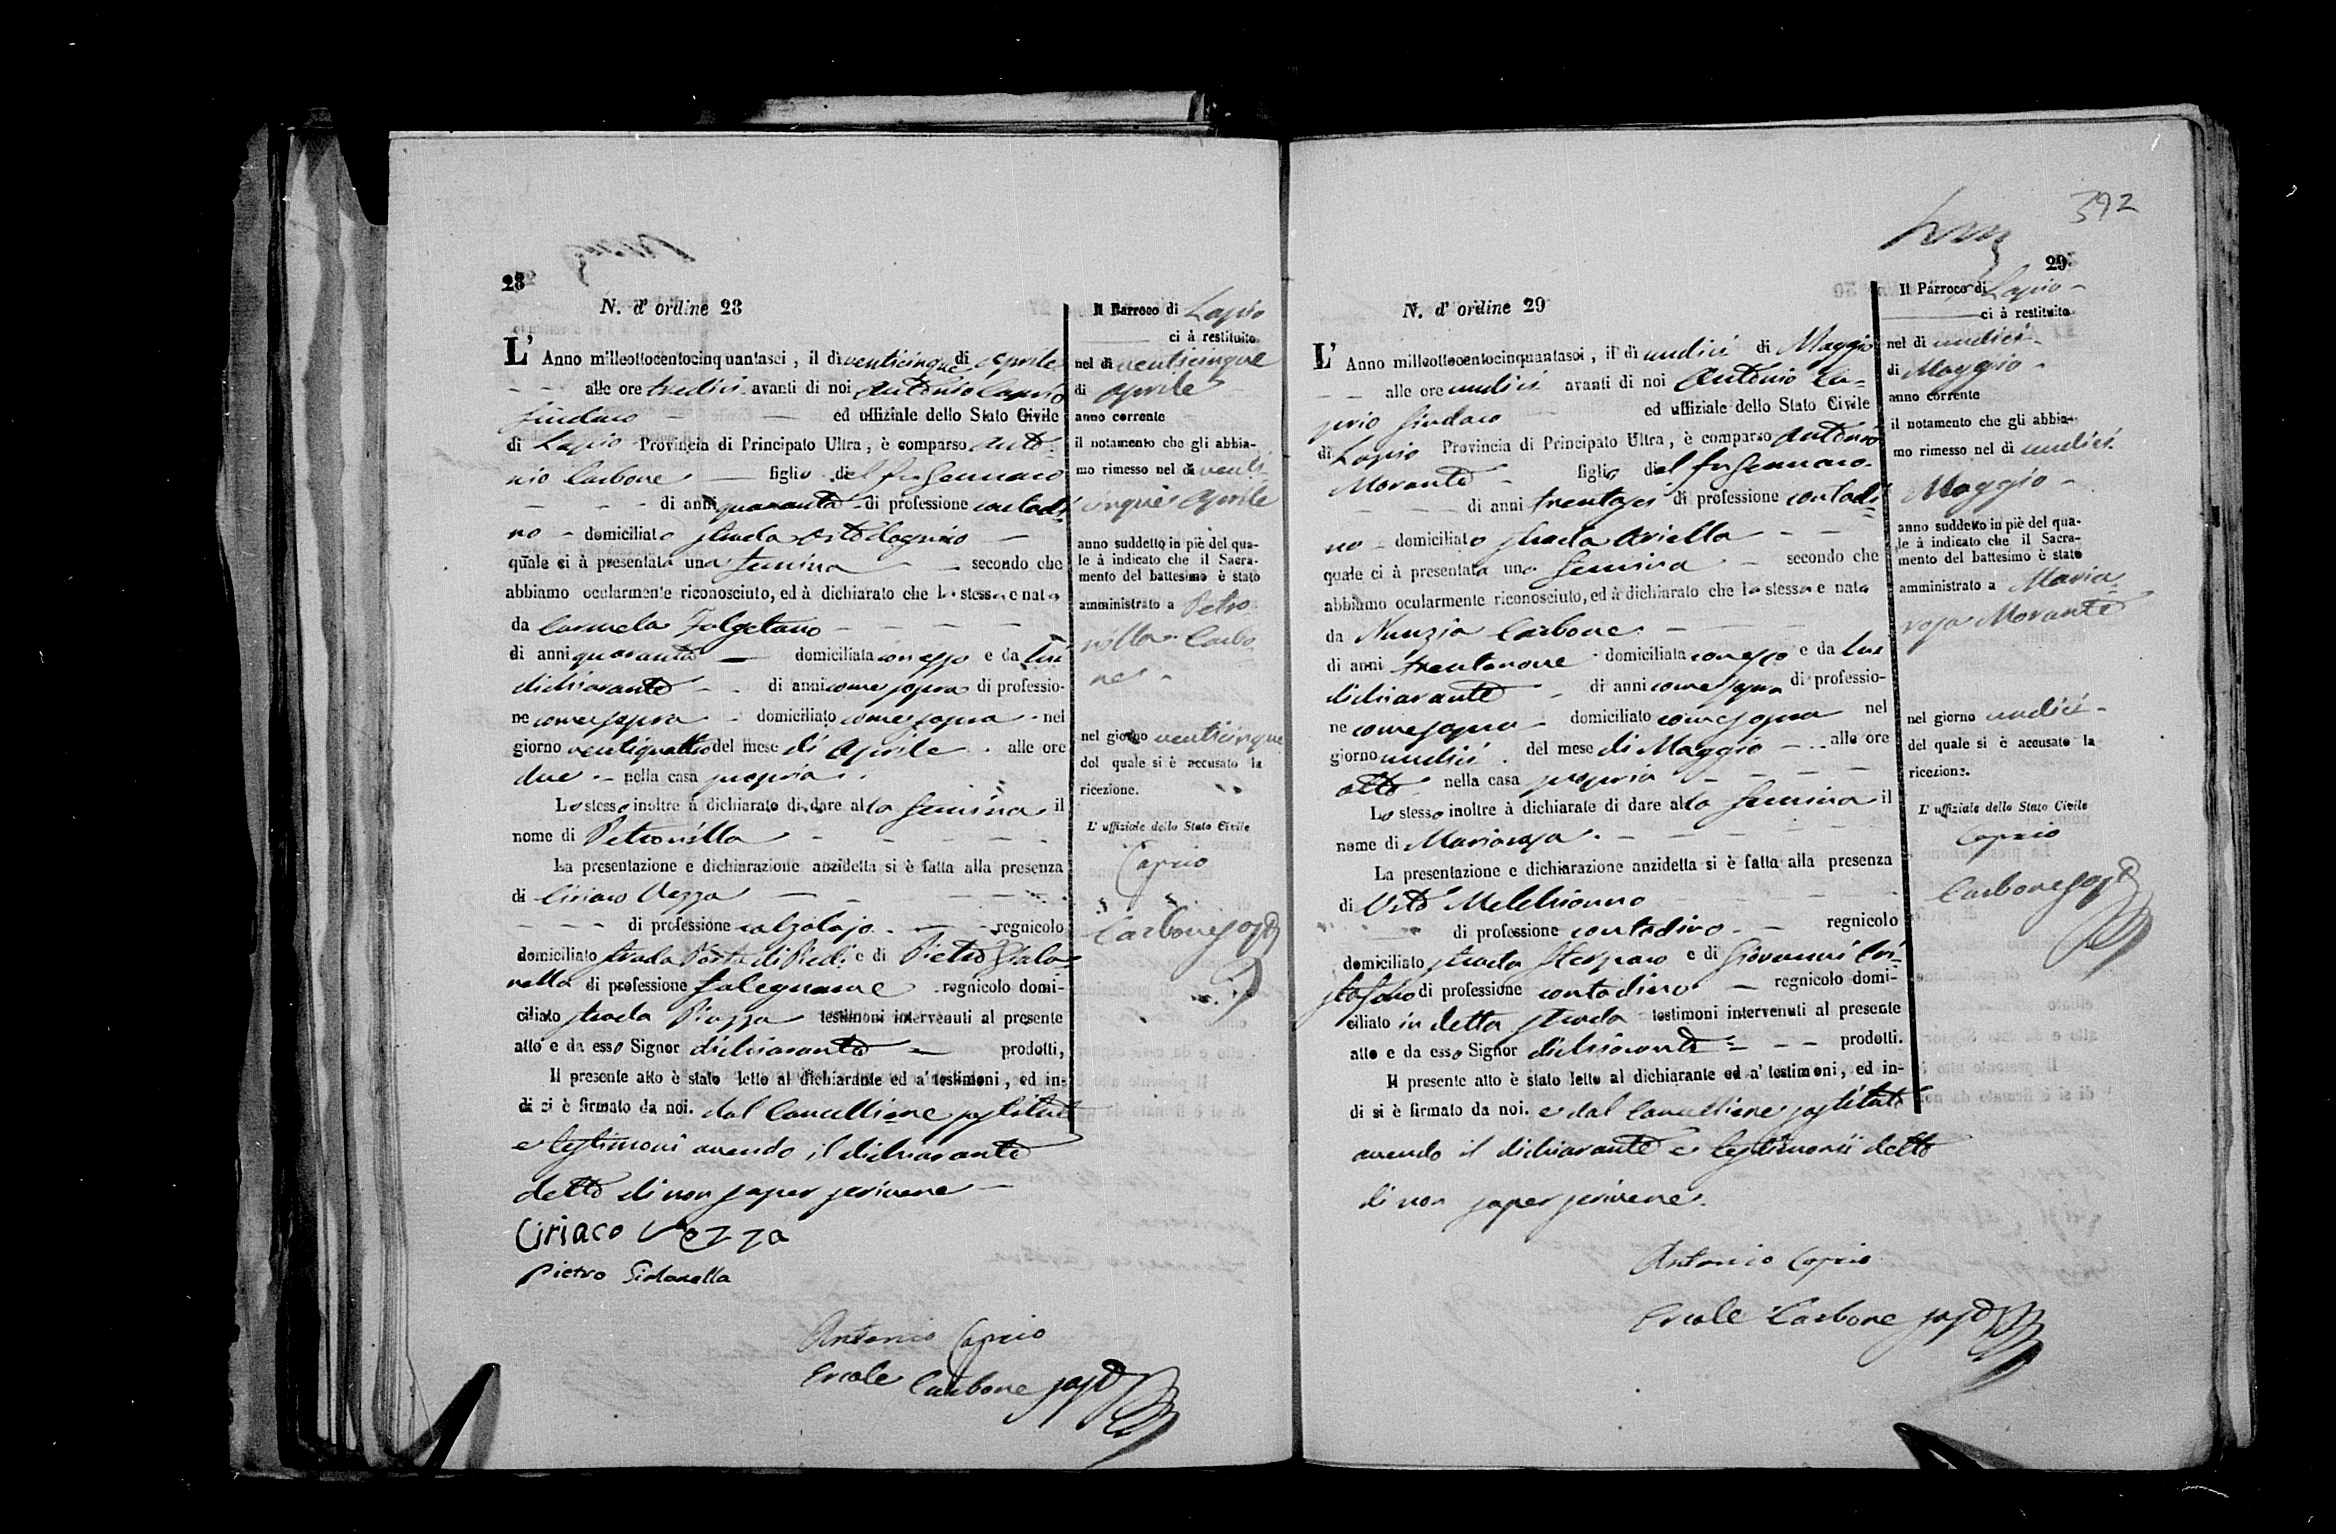 28
N. d' ordine 28
L' Anno milleottocentocinquantasei, il dì venticinque di Aprile
alle ore tredici avanti di noi Antonio Caprio
Sindaco ed uffiziale dello Stato Civile
di Lapio Provincia di Principato Ultra, è comparso Anto=
nio Carbone figlio del fu Gennaro
di anni quaranta di professione contadi=
no domiciliato strada
quale ci à presentata una femina secondo che
abbiamo ocularmente riconosciuto, ed à dichiarato che la stessa e nata
da Carmela
di anni quaranta domiciliata con esso e da lui
dichiarante di anni come sopra di professio-
ne come sopra domiciliato come sopra nel
giorno ventiquattro del mese di Aprile alle ore
due nella casa propria
Lo stesso inoltre à dichiarato di dare alla femina il
nome di Petronilla
La presentazione e dichiarazione anzidetta si è fatta alla presenza
di Ciriaco Vezza
di professione calzolajo regnicolo
domiciliato strada Porta di Piedi e di Pietro
di professione falegname regnicolo domi-
ciliato strada Piazza testimoni intervenuti al presente
atto e da esso Signor dichiarante prodotti,
Il presente atto è stato letto al dichiarante ed a' testimoni, ed in-
di si è firmato da noi. dal Cancelliere sostituto
e testimoni avendo il dichiarante
detto di non saper scrivere
Ciriaco Vezza
Pietro
Antonio Caprio
Ercole Carbone sosto
Il Parroco di Lapio
ci à restituito
nel dì venticinque
di Aprile
anno corrente
il notamento che gli abbia-
mo rimesso nel dì venti
cinque Aprile
anno suddetto in piè del qua-
le à indicato che il Sacra-
mento del battesimo è stato
amministrato a Petro
nilla Carbo
ne
nel giorno venticinque
del quale si è accusato la
ricezione.
L' uffiziale dello Stato Civile
Caprio
Carbone sosto
392
29
N. d' ordine 29
L' Anno milleottocentocinquantasei, il dì undici di Maggio
alle ore undici avanti di noi Antonio Ca=
prio Sindaco ed uffiziale dello Stato Civile
di Lapio Provincia di Principato Ultra, è comparso Antonio
Morante figlio del fu Gennaro
di anni trentasei di professione contadi=
no domiciliato strada Ariella
quale ci à presentata una femina secondo che
abbiamo ocularmente riconosciuto, ed à dichiarato che la stessa e nata
da Nunzia Carbone
di anni trentanove domiciliata con esso e da lui
dichiarante di anni come sopra di professio-
ne come sopra domiciliato come sopra nel
giorno undici del mese di Maggio alle ore
otto nella casa propria
Lo stesso inoltre à dichiarato di dare alla femina il
nome di Mariarosa
La presentazione e dichiarazione anzidetta si è fatta alla presenza
di Vito Melchionno
di professione contadino regnicolo
domiciliato strada e di Giovanni Cri=
stofano di professione contadino regnicolo domi-
ciliato in detta strada testimoni intervenuti al presente
atto e da esso Signor dichiarante prodotti.
Il presente atto è stato letto al dichiarante ed a' testimoni, ed in-
di si è firmato da noi. e dal Cancelliere sostituto
avendo il dichiarante e testimonii detto
di non saper scrivere.
Antonio Caprio
Ercole Carbone sosto
Il Parroco di Lapio
ci à restituito
nel dì undici
di Maggio
anno corrente
il notamento che gli abbia-
mo rimesso nel dì undici
Maggio
anno suddetto in piè del qua-
le à indicato che il Sacra-
mento del battesimo è stato
amministrato a Maria
rosa Morante
nel giorno undici
del quale si è accusato la
ricezione.
L' uffiziale dello Stato Civile
Caprio
Carbone sosto